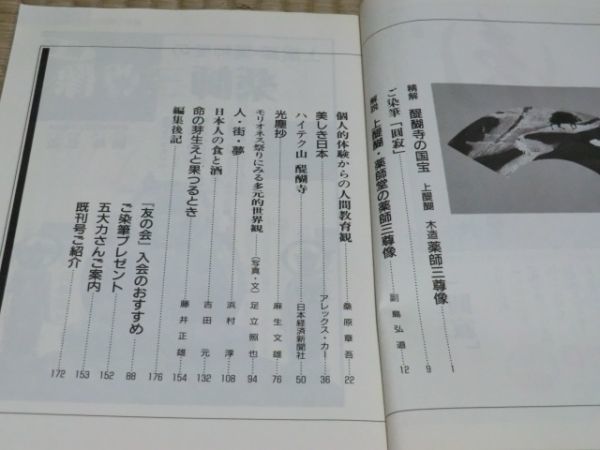 精解 醍醐寺の国宝 上醍醐 木造薬師三尊像 1
ご染筆「圓寂」 9
解説 上醍醐・薬師堂の薬師三尊像 副島弘道 12
個人的体験からの人間教育観 桑原章吾 22
美しき日本 アレックス・カー 36
ハイテク山 醍醐寺 日本経済新聞社 50
光塵抄 麻生文雄 76
モリオネス祭りにみる多元的世界観 (写真・文)足立照也 94
人・街・夢 浜村淳 108
日本人の食と酒 吉田元 132
命の芽生えと果つるとき 藤井正雄 154
編集後記 176
「友の会」入会のおすすめ 88
ご染筆プレゼント 152
五大力さんご案内 153
既刊号ご紹介 172